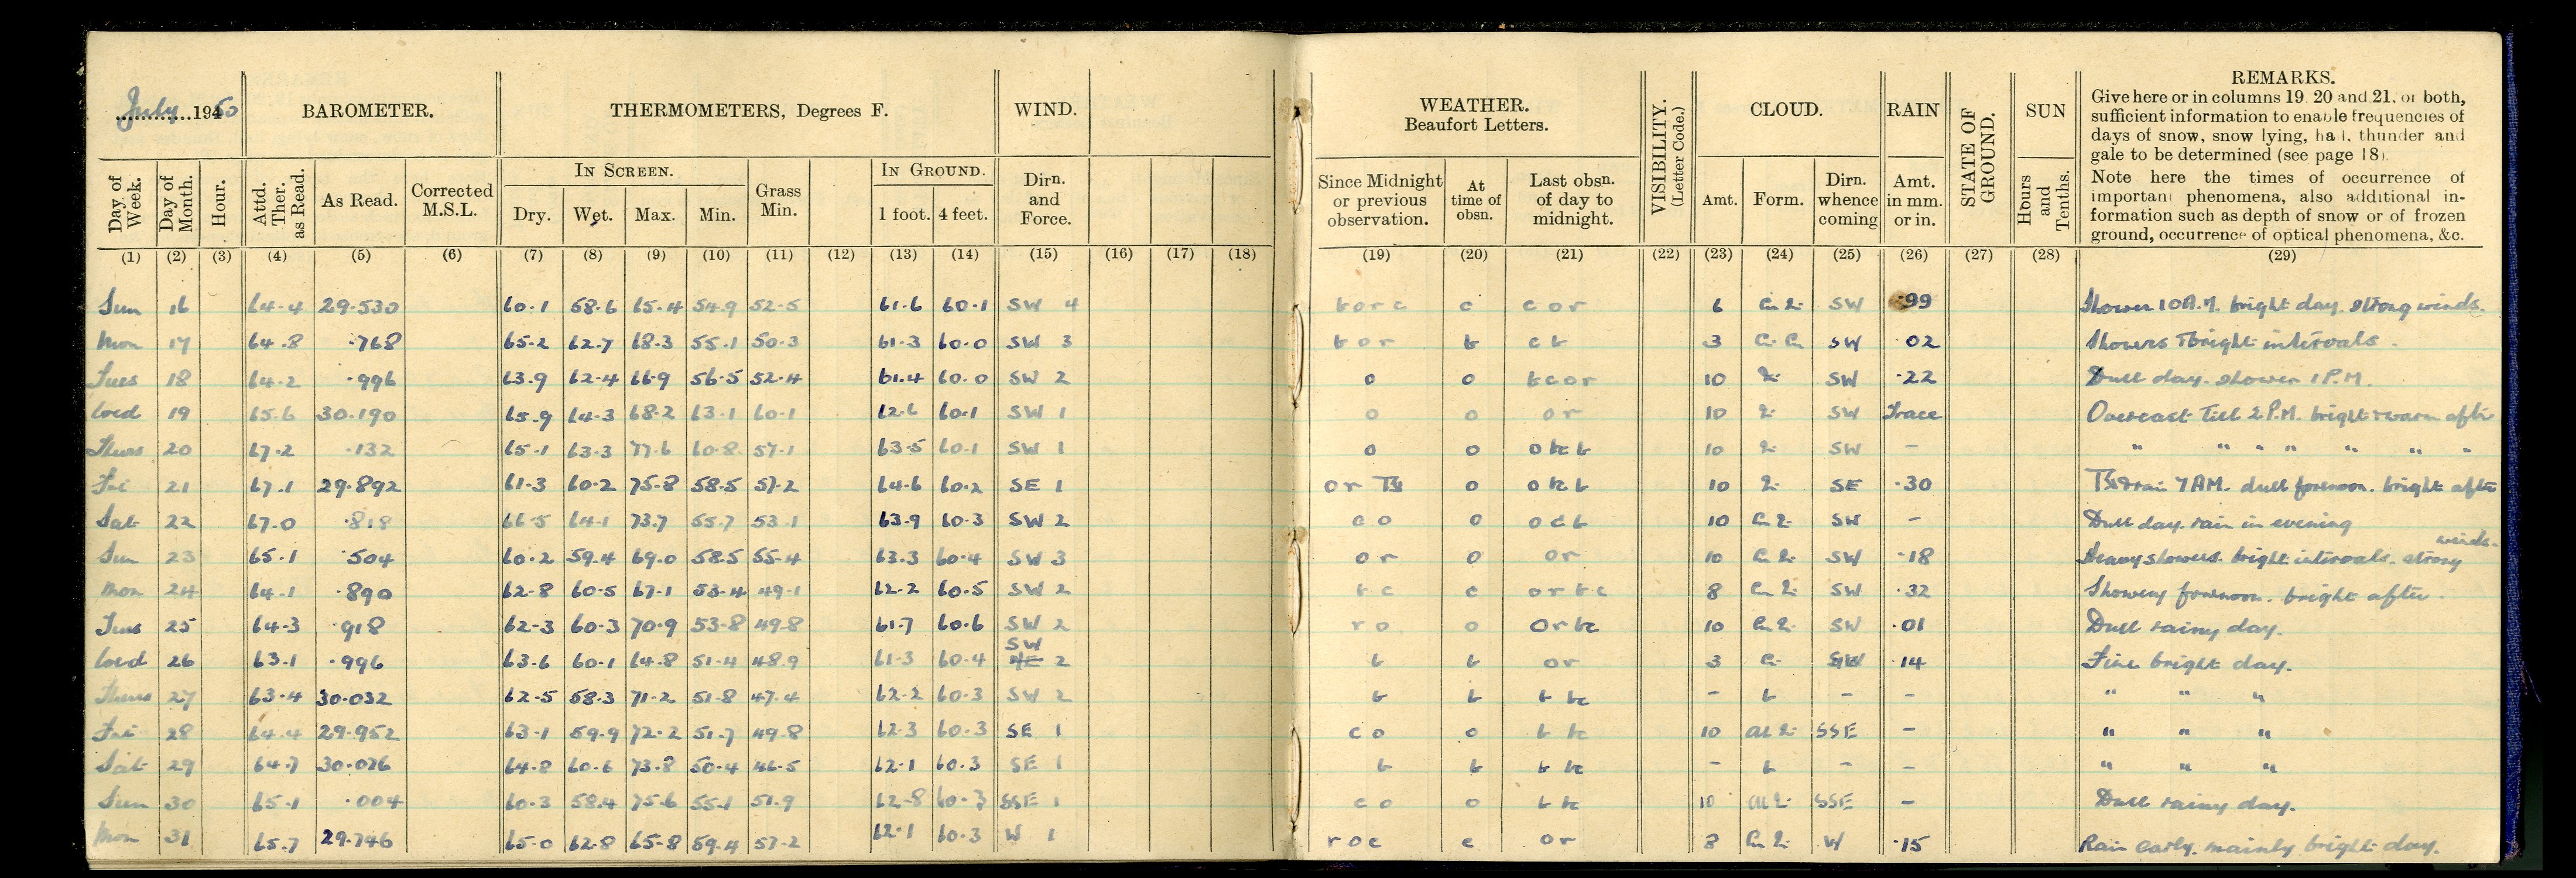 July 1950
BAROMETER.
THERMOMETERS, Degrees F.
WIND.
WEATHER.
Beaufort Letters.
VISIBILITY.
(Letter Code.)
CLOUD.
RAIN
STATE OF GROUND.
SUN
REMARKS.
Give here or in columns 19, 20 and 21, or both,
sufficient information to enable frequencies of
days of snow, snow lying, hail, thunder and
gale to be determined (see page 18).
Note here the times of occurrence of
important phenomena, also additional in-
formation such as depth of snow or of frozen
ground, occurrence of optical phenomena, &c.
Day of Week.
Day of Month.
Hour.
Attd. Ther. as Read.
As Read.
Corrected M.S.L.
IN SCREEN.
Dry. Wet. Max. Min.
Grass Min.
IN GROUND.
1 foot. 4 feet.
Dirn. and Force.
Since Midnight or previous observation.
At time of obsn.
Last obsn. of day to midnight.
Amt. Form. Dirn. whence coming
Amt. in mm. or in.
Hours and Tenths.
(1) (2) (3) (4) (5) (6) (7) (8) (9) (10) (11) (12) (13) (14) (15) (16) (17) (18) (19) (20) (21) (22) (23) (24) (25) (26) (27) (28) (29)
Sun 16 64.4 29.530 60.1 58.6 65.4 54.9 52.5 61.6 60.1 SW 4 c c o r 6 SW .99 Shower 10 A.M. bright day. strong winds.
Mon 17 64.8 .768 65.2 62.7 68.3 55.1 50.3 61.3 60.0 SW 3 b o r b c b 3 SW 02 Showers & bright intervals.
Tues 18 64.2 .996 63.9 62.4 66.9 56.5 52.4 61.4 60.0 SW 2 o o 10 SW .22 Dull day. shower 1 P.M.
Wed 19 65.6 30.190 65.9 64.3 68.2 63.1 60.1 62.6 60.1 SW 1 o o o r 10 SW Trace Overcast till 2 P.M. bright & warm after
Thurs 20 67.2 .132 65.1 63.3 77.6 60.8 57.1 63.5 60.1 SW 1 o o o bc b 10 SW - " " " " " " "
Fri 21 67.1 29.892 61.3 60.2 75.8 58.5 57.2 64.6 60.2 SE 1 o r o 10 SE .30 rain 7 AM. dull forenoon. bright after
Sat 22 67.0 .818 66.5 64.1 73.7 55.7 53.1 63.9 60.3 SW 2 c o o o c b 10 SW - Dull day. rain in evening
Sun 23 65.1 .504 60.2 59.4 69.0 58.5 55.4 63.3 60.4 SW 3 o r o o r 10 SW .18 Heavy showers. bright intervals. strong winds.
Mon 24 64.1 .890 62.8 60.5 67.1 53.4 49.1 62.2 60.5 SW 2 b c c o r b c 8 SW .32 Showery forenoon. bright after.
Tues 25 64.3 .918 62.3 60.3 70.9 53.8 49.8 61.7 60.6 SW 2 r o o o r bc 10 SW .01 Dull rainy day.
Wed 26 63.1 .996 63.6 60.1 64.8 51.4 48.9 61.3 60.4 SW 2 b b o r 3 SW .14 Fine bright day.
Thurs 27 63.4 30.032 62.5 58.3 71.2 51.8 47.4 62.2 60.3 SW 2 b b b bc - b - - " " "
Fri 28 64.4 29.952 63.1 59.9 72.2 51.7 49.8 62.3 60.3 SE 1 c o o b bc 10 SSE - " " "
Sat 29 64.7 30.076 64.8 60.6 73.8 50.4 46.5 62.1 60.3 SE 1 b b b bc - b - - " " "
Sun 30 65.1 .004 60.3 58.4 75.6 55.1 51.9 62.8 60.3 SSE 1 c o o b bc 10 SSE - Dull rainy day.
Mon 31 65.7 29.746 65.0 62.8 65.8 59.4 57.2 62.1 60.3 W 1 r o c c o r 8 W .15 Rain early. mainly bright day.